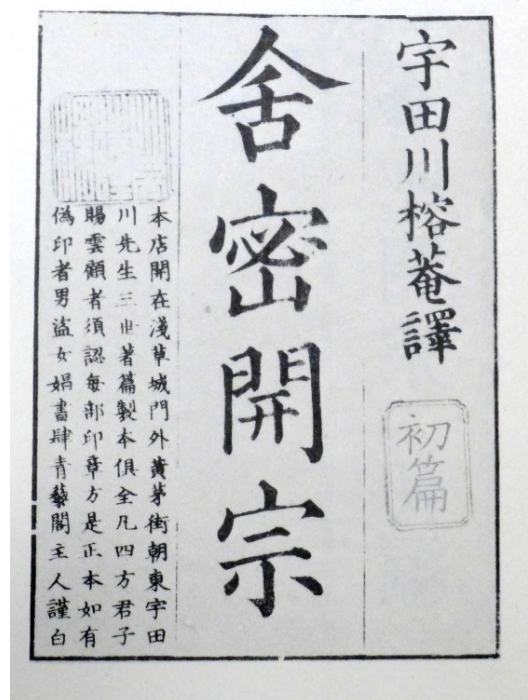 宇田川榕菴譯
初篇
舍密開宗
本店開在淺草城門外黃茅街朝東宇田
川先生三世著篇製本俱全凡四方君子
賜雲顧者須認每部印章方是正本如有
偽印者男盜女娼書肆青藜閣主人謹白